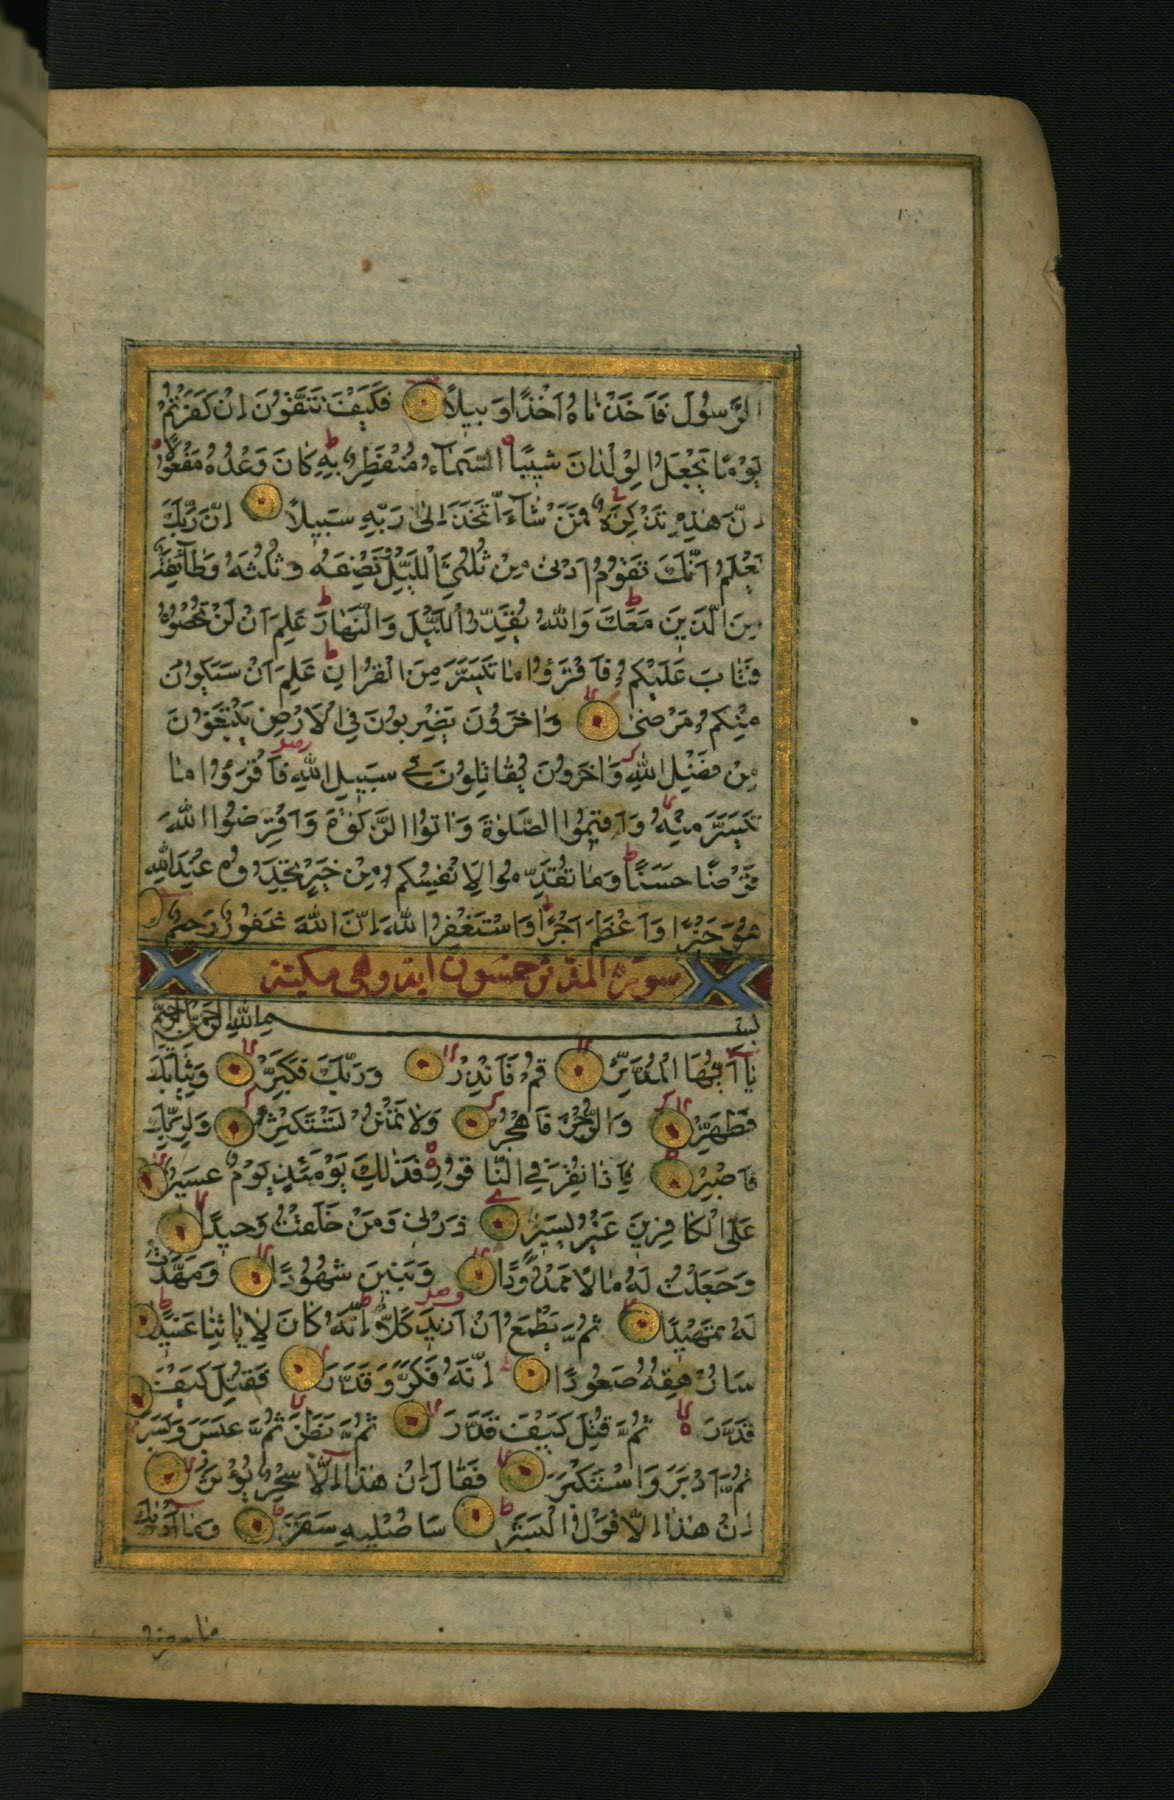 الرَّسُولَ فَاَخَذْنَاهُ اَخْذًا وَبِيلًا فَكَيْفَ تَتَّقُونَ اِنْ كَفَرْتُمْ
يَوْمًا يَجْعَلُ الْوِلْدَانَ شِيبًا السَّمَاءُ مُنْفَطِرٌ بِهِ كَانَ وَعْدُهُ مَفْعُولًا
اِنَّ هٰذِهِ تَذْكِرَةٌ فَمَنْ شَاءَ اتَّخَذَ اِلىٰ رَبِّهِ سَبِيلًا اِنَّ رَبَّكَ
يَعْلَمُ اَنَّكَ تَقُومُ اَدْنىٰ مِنْ ثُلُثَيِ اللَّيْلِ وَنِصْفَهُ وَثُلُثَهُ وَطَائِفَةٌ
مِنَ الَّذِينَ مَعَكَ وَاللهُ يُقَدِّرُ اللَّيْلَ وَالنَّهَارَ عَلِمَ اَنْ لَنْ تُحْصُوهُ
فَتَابَ عَلَيْكُمْ فَاقْرَؤُا مَا تَيَسَّرَ مِنَ الْقُرْاٰنِ عَلِمَ اَنْ سَيَكُونُ
مِنْكُمْ مَرْضىٰ وَاٰخَرُونَ يَضْرِبُونَ فِي الْاَرْضِ يَبْتَغُونَ
مِنْ فَضْلِ اللهِ وَاٰخَرُونَ يُقَاتِلُونَ فِي سَبِيلِ اللهِ فَاقْرَؤُا مَا
تَيَسَّرَ مِنْهُ وَاَقِيمُوا الصَّلٰوةَ وَاٰتُوا الزَّكٰوةَ وَاَقْرِضُوا اللهَ
قَرْضًا حَسَنًا وَمَا تُقَدِّمُوا لِاَنْفُسِكُمْ مِنْ خَيْرٍ تَجِدُوهُ عِنْدَ اللهِ
هُوَ خَيْرًا وَاَعْظَمَ اَجْرًا وَاسْتَغْفِرُوا اللهَ اِنَّ اللهَ غَفُورٌ رَحِيمٌ
سورة المدثر خمسون اية وهي مكية
بسم الله الرحمن الرحيم
يَا اَيُّهَا الْمُدَّثِّرُ قُمْ فَاَنْذِرْ وَرَبَّكَ فَكَبِّرْ وَثِيَابَكَ
فَطَهِّرْ وَالرُّجْزَ فَاهْجُرْ وَلَا تَمْنُنْ تَسْتَكْثِرُ وَلِرَبِّكَ
فَاصْبِرْ فَاِذَا نُقِرَ فِي النَّاقُورِ فَذٰلِكَ يَوْمَئِذٍ يَوْمٌ عَسِيرٌ
عَلَى الْكَافِرِينَ غَيْرُ يَسِيرٍ ذَرْنِي وَمَنْ خَلَقْتُ وَحِيدًا
وَجَعَلْتُ لَهُ مَالًا مَمْدُودًا وَبَنِينَ شُهُودًا وَمَهَّدْتُ
لَهُ تَمْهِيدًا ثُمَّ يَطْمَعُ اَنْ اَزِيدَ كَلَّا اِنَّهُ كَانَ لِاٰيَاتِنَا عَنِيدًا
سَاُرْهِقُهُ صَعُودًا اِنَّهُ فَكَّرَ وَقَدَّرَ فَقُتِلَ كَيْفَ
قَدَّرَ ثُمَّ قُتِلَ كَيْفَ قَدَّرَ ثُمَّ نَظَرَ ثُمَّ عَبَسَ وَبَسَرَ
ثُمَّ اَدْبَرَ وَاسْتَكْبَرَ فَقَالَ اِنْ هٰذَا اِلَّا سِحْرٌ يُؤْثَرُ
اِنْ هٰذَا اِلَّا قَوْلُ الْبَشَرِ سَاُصْلِيهِ سَقَرَ وَمَا اَدْرٰيكَ